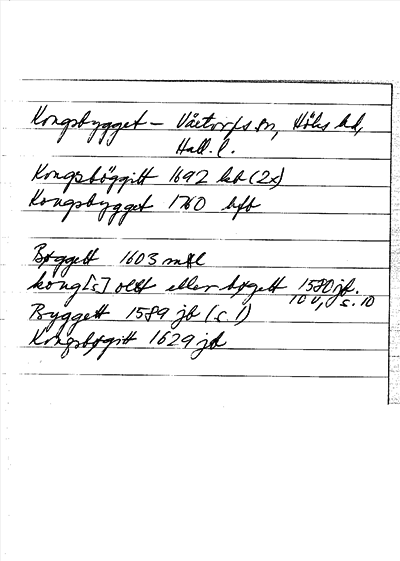 Kongsbygget – Våxtorps sn, Höks hd,
Hall. l.
Kongsböggitt 1692 lab (2x)
Kongsbygget 1760 hfb
Bøggett 1603 mtl
kong[s] oltt eller bøgett 1580 jb.
10 v, s. 10
Byggett 1589 jb (s. 1)
Kongsbøgitt 1629 jb